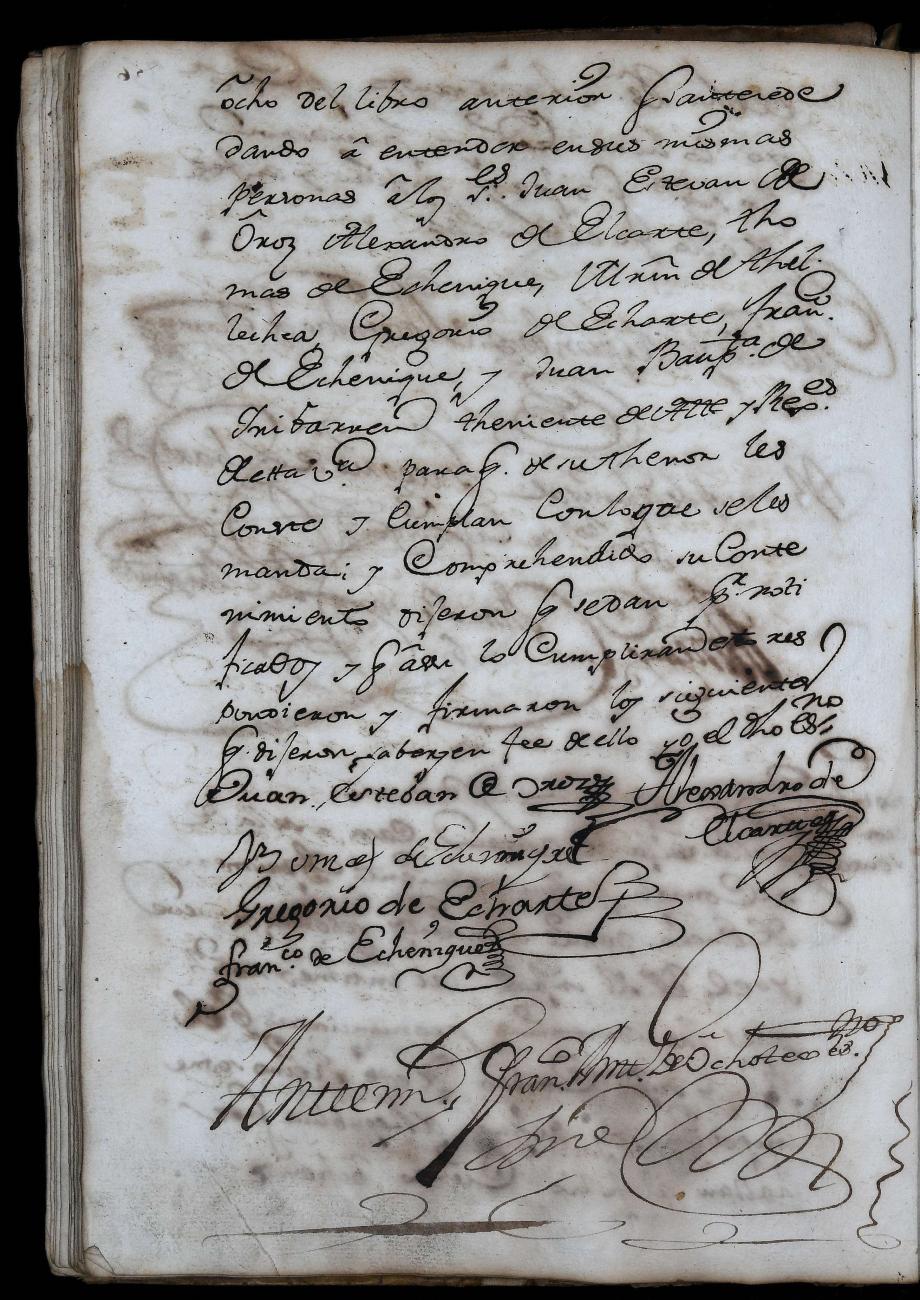 ôcho del libro anterior q̃ antecede
dando â entender ensus mismas
personas âlos s.es Juan Estevan de
Ôroz Alexandro de Elcarte, tho
mas de Echenique, Mrñ de Athel
lechea Gregorio de Echarte, fran.
de Echenique, y Juan Baup.ta de
Iribarren theniente de Alle y Rex.es
de esta v.a para q. de su thenor les
Conste y Cumplan Conloque seles
manda; y Comprehendido su Conte
nimiento dijeron q sedan p.r noti
ficados y q âssi lo Cumpliran esto res
pondieron y firmaron los siguientes
q. dijeron saber, en fee de ello yo el dho ess.no
Juan Esteban de Oroz Alexandro de
Elcarte
Thomas de Echenique
Gregorio de Echarte
fran.co de Echenique
Antemi, Fran.co Ant.o de Ochoteco es.no